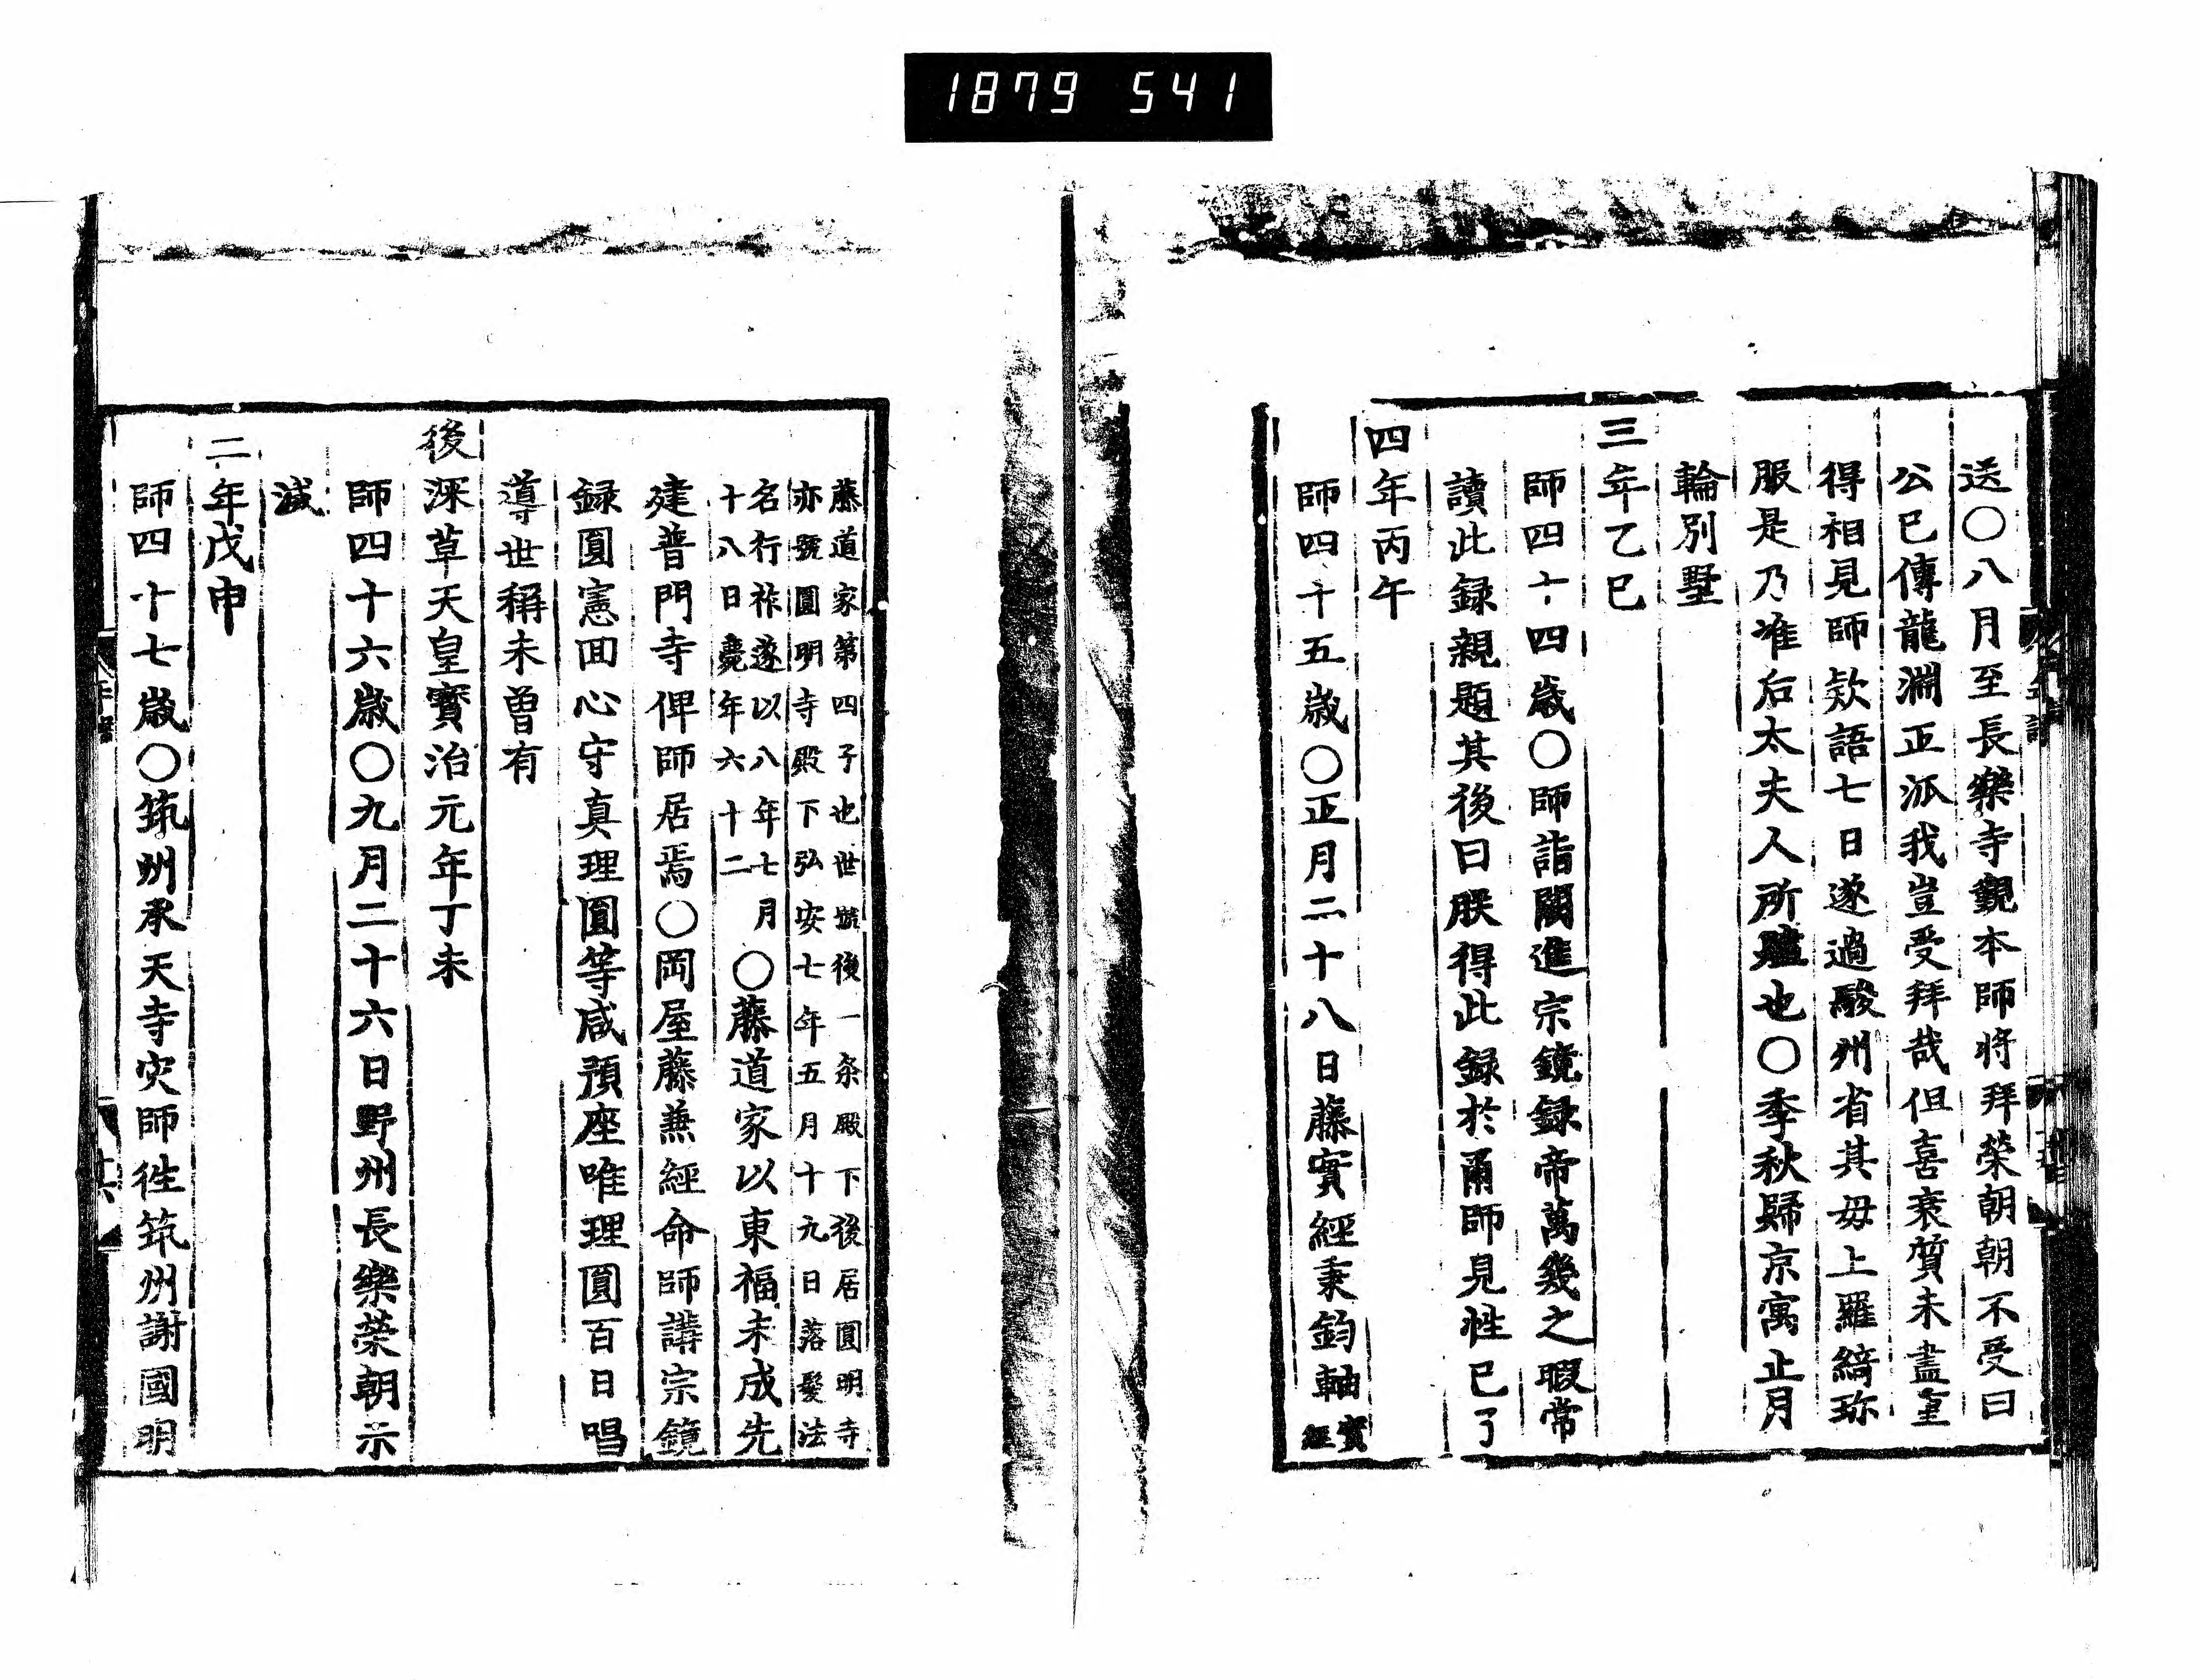 1879 541
送〇八月至長樂寺覲本師將拜榮朝朝不受曰
公已傳龍淵正派我豈受拜哉但喜衰質未盡重
得相見師欵語七日遂過駿州省其母上羅綺珎
服是乃准后太夫人所賮也〇季秋歸京寓止月
輪別墅
三年乙巳
師四十四歲〇師詣闕進宗鏡録帝萬幾之暇常
讀此録親題其後曰朕得此録於爾師見性已了
四年丙午
師四十五歲〇正月二十八日藤實經秉鈞軸實
經
藤道家第四子也世號後一条殿下後居圓明寺
亦號圓明寺殿下弘安七年五月十九日落髮法
名行祚遂以八年七月
十八日薨年六十二
〇藤道家以東福未成先
建普門寺俾師居焉〇岡屋藤兼經命師講宗鏡
録圓憲回心守真理圓等咸預座唯理圓百日唱
導世稱未曽有
後深草天皇寶治元年丁未
師四十六歲〇九月二十六日野州長樂榮朝示
滅
二年戊申
師四十七歲〇筑州承天寺灾師徃筑州謝國明